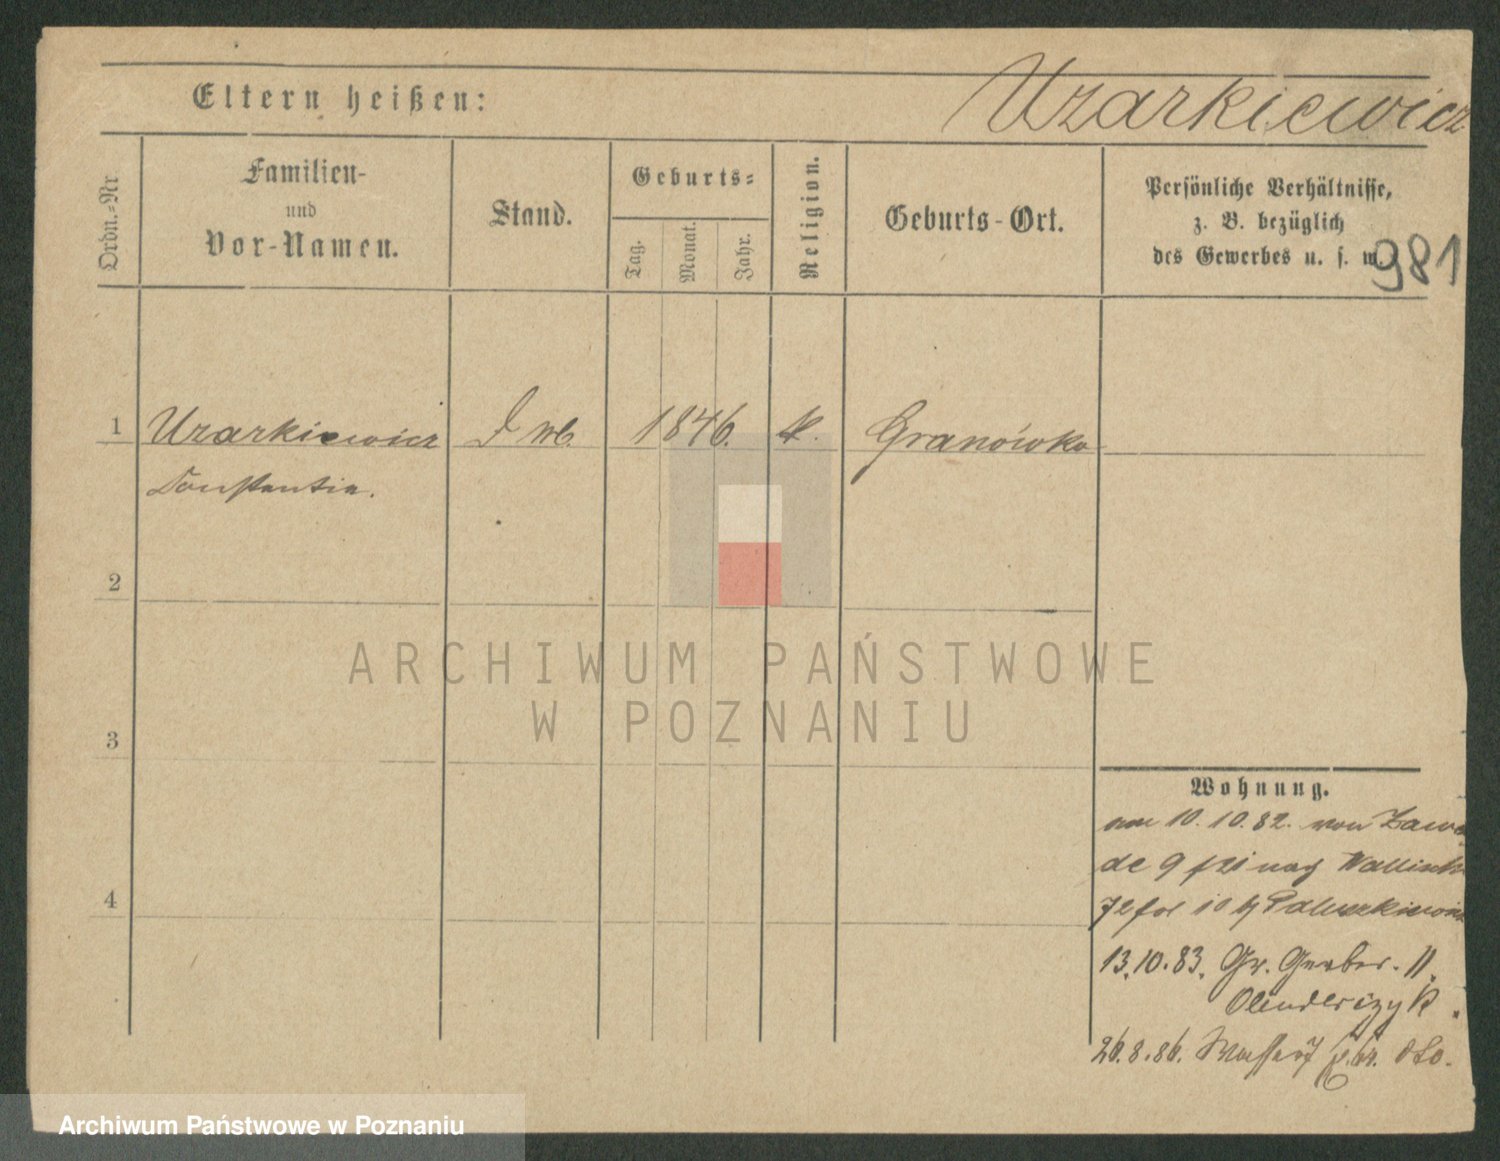 Eltern heißen:
Uzarkiewicz
Ordn.-Nr
Familien-
und
Vor-Namen.
Stand.
Geburts-
Tag.
Monat.
Jahr.
Religion.
Geburts-Ort.
Persönliche Verhältnisse,
z. B. bezüglich
des Gewerbes u. s. w.
981
1 Uzarkiewicz 1846. k. Granówko
Constantia.
2
ARCHIWUM PAŃSTWOWE
W POZNANIU
3
Wohnung.
am 10.10.82. von Zawa
de 9 nach Wallisch
72 Paluszkiewicz
4
13.10.83. Gr. Gerber. 11.
26.8.86.
Archiwum Państwowe w Poznaniu